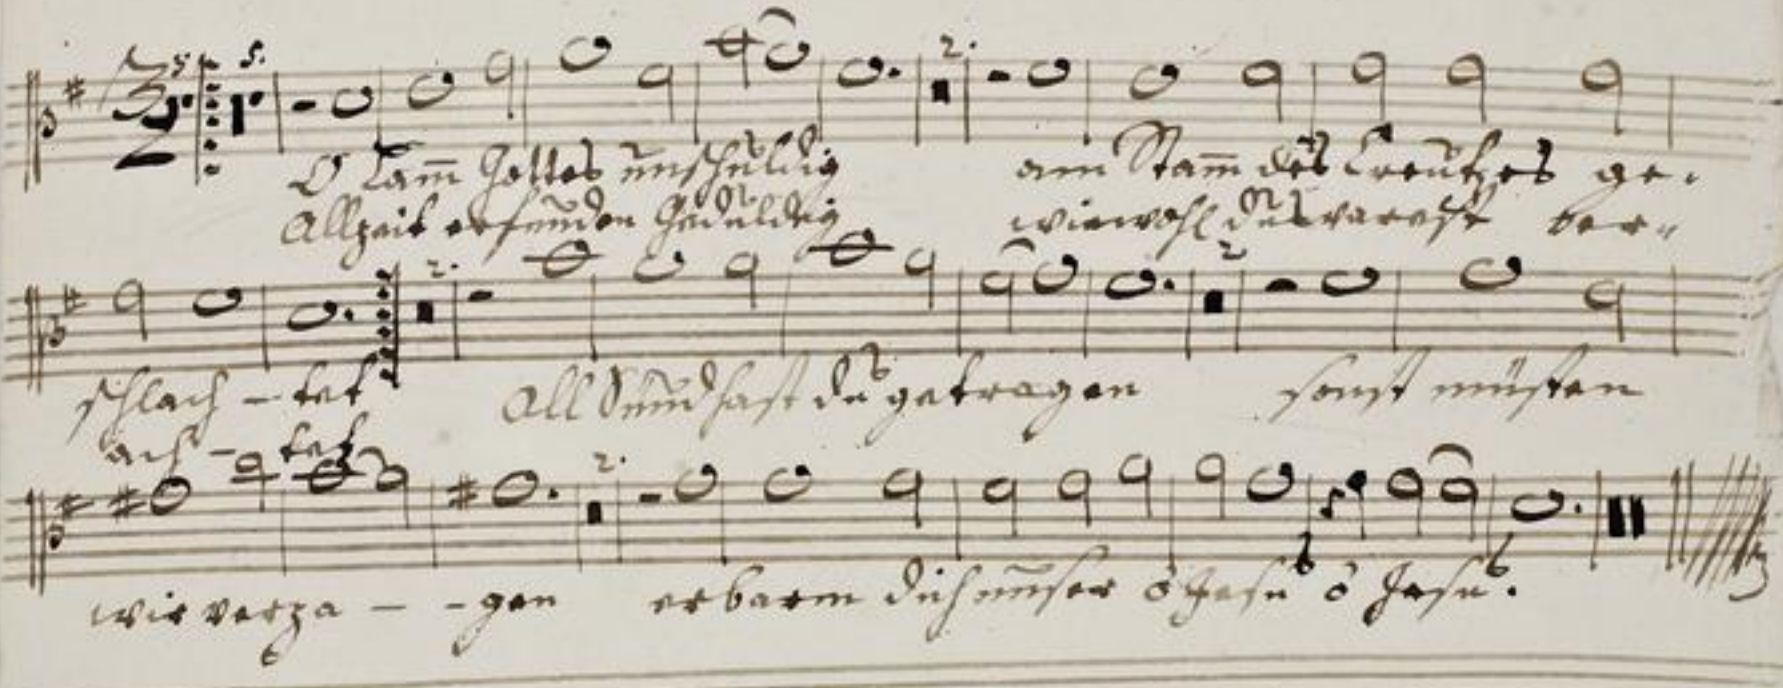 5. 5. 2.
O Lam̅ Gottes unschuldig am Stam̅ des Creutzes ge-
Allzeit erfunden Geduldig wiewohl du warest ver-
2. 2
schlach - tet All Sünd hast du getragen sonst müsten
ach - tet
2.
wir verza - - gen erbarm dich unser o Jesu o Jesu.